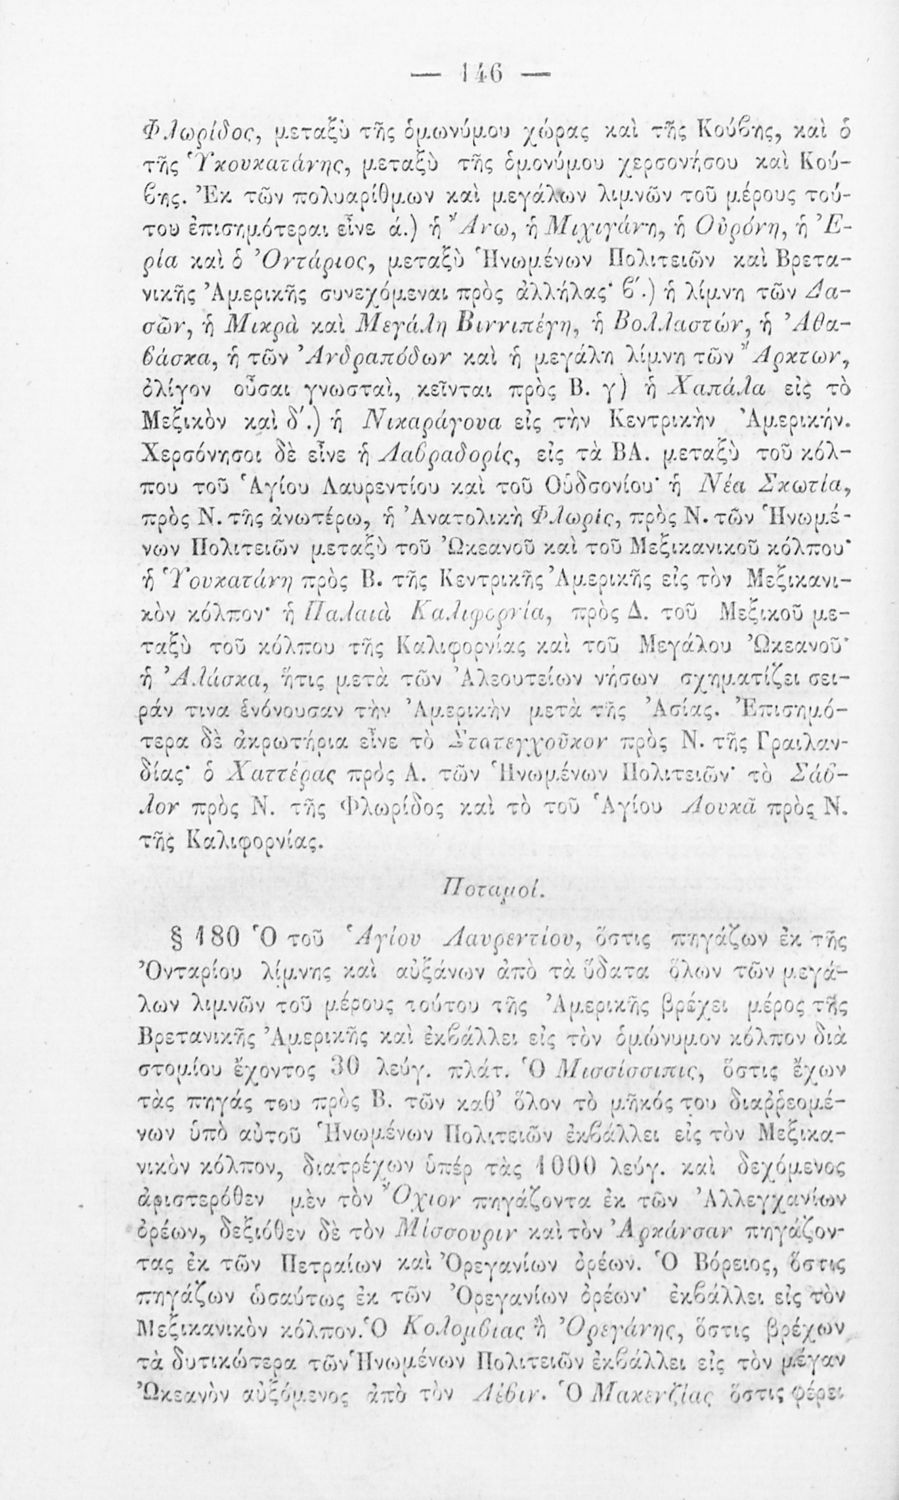 — 146 —
Φλωρίδος, μεταξὺ τῆς ὁμωνύμου χώρας καὶ τῆς Κούβης, καὶ ὁ
τῆς Ὑκουκατάνης, μεταξὺ τῆς ὁμονύμου χερσονήσου καὶ Κού-
βης. Ἐκ τῶν πολυαρίθμων καὶ μεγάλων λιμνῶν τοῦ μέρους τού-
του ἐπισημότεραι εἶνε ά.) ἡ Ἄνω, ἡ Μιχιγάνη, ἡ Οὐρόνη, ἡ Ἐ-
ρία καὶ ὁ Ὀντάριος, μεταξὺ Ἡνωμένων Πολιτειῶν καὶ Βρετα-
νικῆς Ἀμερικῆς συνεχόμεναι πρὸς ἀλλήλας· β΄.) ἡ λίμνη τῶν Δα-
σῶν, ἡ Μικρὰ καὶ Μεγάλη Βιννιπέγη, ἡ Βολλαστών, ἡ Ἀθα-
βάσκα, ἡ τῶν Ἀνδραπόδων καὶ ἡ μεγάλη λίμνη τῶν Ἄρκτων,
ὀλίγον οὖσαι γνωσταὶ, κεῖνται πρὸς Β. γ) ἡ Χαπάλα εἰς τὸ
Μεξικὸν καὶ δ΄.) ἡ Νικαράγουα εἰς τὴν Κεντρικὴν Ἀμερικήν.
Χερσόνησοι δὲ εἶνε ἡ Λαβραδορίς, εἰς τὰ ΒΑ. μεταξὺ τοῦ κόλ-
που τοῦ Ἁγίου Λαυρεντίου καὶ τοῦ Οὐδσονίου· ἡ Νέα Σκωτία,
πρὸς Ν. τῆς ἀνωτέρω, ἡ Ἀνατολικὴ Φλωρίς, πρὸς Ν. τῶν Ἡνωμέ-
νων Πολιτειῶν μεταξὺ τοῦ Ὠκεανοῦ καὶ τοῦ Μεξικανικοῦ κόλπου·
ἡ Ὑουκατάνη πρὸς Β. τῆς Κεντρικῆς Ἀμερικῆς εἰς τὸν Μεξικανι-
κὸν κόλπον· ἡ Παλαιὰ Καλιφορνία, πρὸς Δ. τοῦ Μεξικοῦ με-
ταξὺ τοῦ κόλπου τῆς Καλιφορνίας καὶ τοῦ Μεγάλου Ὠκεανοῦ·
ἡ Ἀλάσκα, ἥτις μετὰ τῶν Ἀλεουτείων νήσων σχηματίζει σει-
ράν τινα ἑνόνουσαν τὴν Ἀμερικὴν μετὰ τῆς Ἀσίας. Ἐπισημό-
τερα δὲ ἀκρωτήρια εἶνε τὸ Στατεγχοῦκον πρὸς Ν. τῆς Γραιλαν-
δίας· ὁ Χαττέρας πρὸς Α. τῶν Ἡνωμένων Πολιτειῶν· τὸ Σάβ-
λον πρὸς Ν. τῆς Φλωρίδος καὶ τὸ τοῦ Ἁγίου Λουκᾶ πρὸς Ν.
τῆς Καλιφορνίας.
Ποταμοί.
§ 180 Ὁ τοῦ Ἁγίου Λαυρεντίου, ὅστις πηγάζων ἐκ τῆς
Ὀνταρίου λίμνης καὶ αὐξάνων ἀπὸ τὰ ὕδατα ὅλων τῶν μεγά-
λων λιμνῶν τοῦ μέρους τούτου τῆς Ἀμερικῆς βρέχει μέρος τῆς
Βρετανικῆς Ἀμερικῆς καὶ ἐκβάλλει εἰς τὸν ὁμώνυμον κόλπον διὰ
στομίου ἔχοντος 30 λεύγ. πλάτ. Ὁ Μισσίσσιπις, ὅστις ἔχων
τὰς πηγάς του πρὸς Β. τῶν καθ’ ὅλον τὸ μῆκός του διαῤῥεομέ-
νων ὑπὸ αὐτοῦ Ἡνωμένων Πολιτειῶν ἐκβάλλει εἰς τὸν Μεξικα-
νικὸν κόλπον, διατρέχων ὑπέρ τὰς 1000 λεύγ. καὶ δεχόμενος
ἀριστερόθεν μὲν τὸν Ὄχιον πηγάζοντα ἐκ τῶν Ἀλλεγχανίων
ὀρέων, δεξιόθεν δὲ τὸν Μίσσουριν καὶ τὸν Ἀρκάνσαν πηγάζον-
τας ἐκ τῶν Πετραίων καὶ Ὀρεγανίων ὀρέων. Ὁ Βόρειος, ὅστις
πηγάζων ὡσαύτως ἐκ τῶν Ὀρεγανίων ὀρέων· ἐκβάλλει εἰς τὸν
Μεξικανικὸν κόλπον. Ὁ Κολομβιας ἢ Ὀρεγάνης, ὅστις βρέχων
τὰ δυτικώτερα τῶν Ἡνωμένων Πολιτειῶν ἐκβάλλει εἰς τὸν μέγαν
Ὠκεανὸν αὐξόμενος ἀπὸ τὸν Λέβιν. Ὁ Μακενζίας ὅστις φέρει